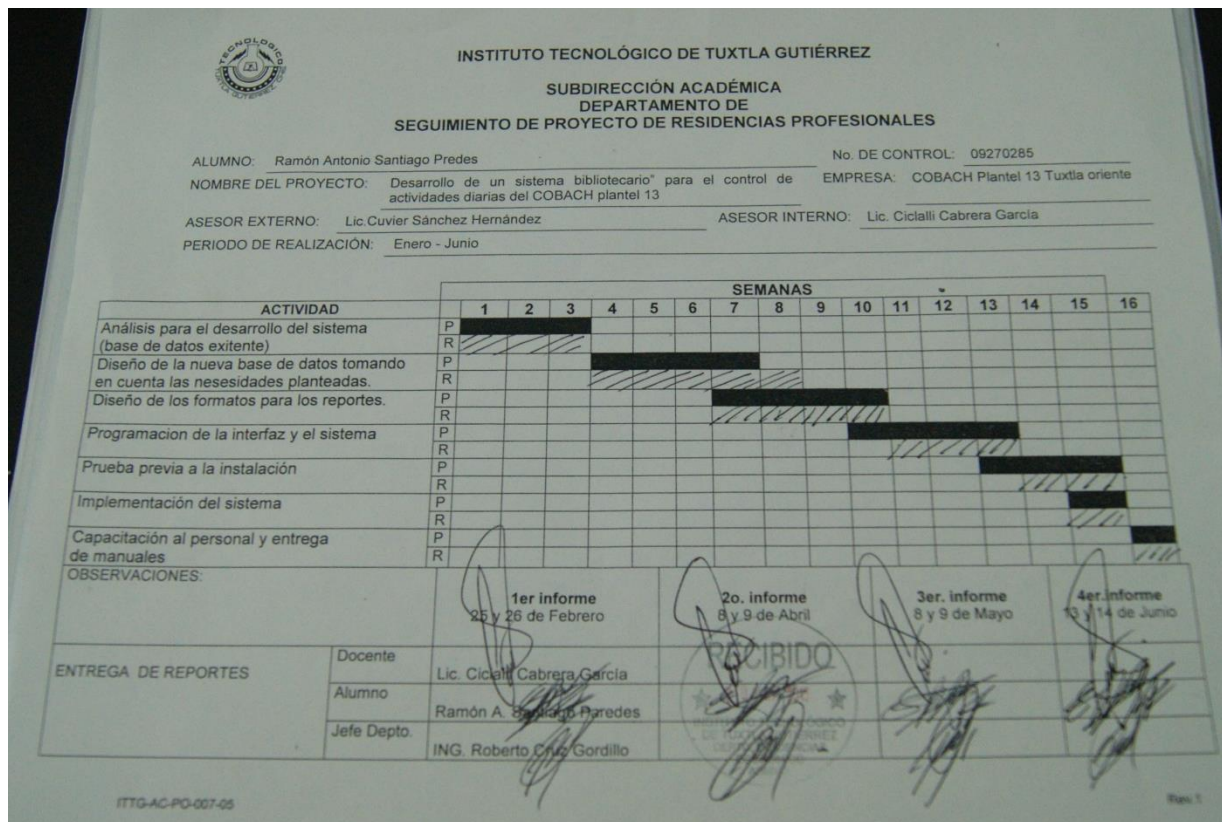 TECNOLOGICO
TUXTLA GUTIERREZ, CHIS.
INSTITUTO TECNOLÓGICO DE TUXTLA GUTIÉRREZ
SUBDIRECCIÓN ACADÉMICA
DEPARTAMENTO DE
SEGUIMIENTO DE PROYECTO DE RESIDENCIAS PROFESIONALES
ALUMNO: Ramón Antonio Santiago Predes No. DE CONTROL: 09270285
NOMBRE DEL PROYECTO: Desarrollo de un sistema bibliotecario" para el control de EMPRESA: COBACH Plantel 13 Tuxtla oriente
actividades diarias del COBACH plantel 13
ASESOR EXTERNO: Lic.Cuvier Sánchez Hernández ASESOR INTERNO: Lic. Ciclalli Cabrera García
PERIODO DE REALIZACIÓN: Enero - Junio
SEMANAS
ACTIVIDAD 1 2 3 4 5 6 7 8 9 10 11 12 13 14 15 16
Análisis para el desarrollo del sistema P
(base de datos exitente) R
Diseño de la nueva base de datos tomando P
en cuenta las nesesidades planteadas. R
Diseño de los formatos para los reportes. P
R
Programacion de la interfaz y el sistema P
R
Prueba previa a la instalación P
R
Implementación del sistema P
R
Capacitación al personal y entrega P
de manuales R
OBSERVACIONES:
1er informe 2o. informe 3er. informe 4er.informe
25 y 26 de Febrero 8 y 9 de Abril 8 y 9 de Mayo 13 y 14 de Junio
RECIBIDO
ENTREGA DE REPORTES Docente Lic. Ciclalli Cabrera García
Alumno Ramón A. Santiago Paredes
INSTITUTO TECNOLÓGICO
DE TUXTLA GUTIERREZ
Jefe Depto. ING. Roberto Cruz Gordillo
ITTG-AC-PO-007-05 Rev. 1